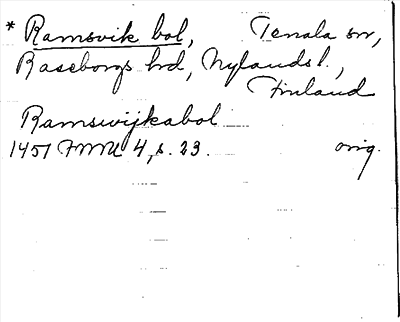 * Ramsvik bol, Tenala sn,
Raseborgs hd, Nylands l.,
Finland
Ramswijkabol
1451 FMU 4, s. 23. orig.